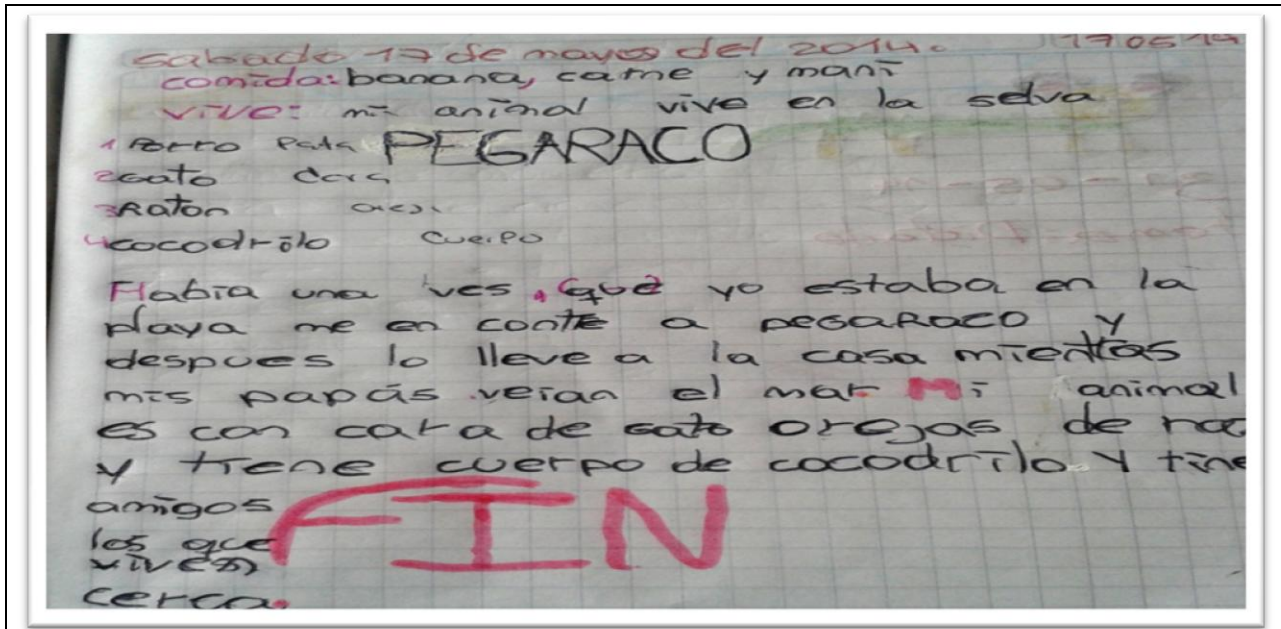 sabado 17 de mayos del 2014. 170514
comida: banana, carne y mani
vive: mi animal vive en la selva
1 Perro Pata PEGARACO
2 Gato Cara
3 Raton
4 cocodrilo cuerpo
Habia una ves, que yo estaba en la
playa me en contre a PEGARACO y
despues lo lleve a la casa mientras
mis papás veian el mar Mi animal
es con cara de gato orejas de
y tiene cuerpo de cocodrilo y tine
amigos
los que
viven
cerca.
FIN